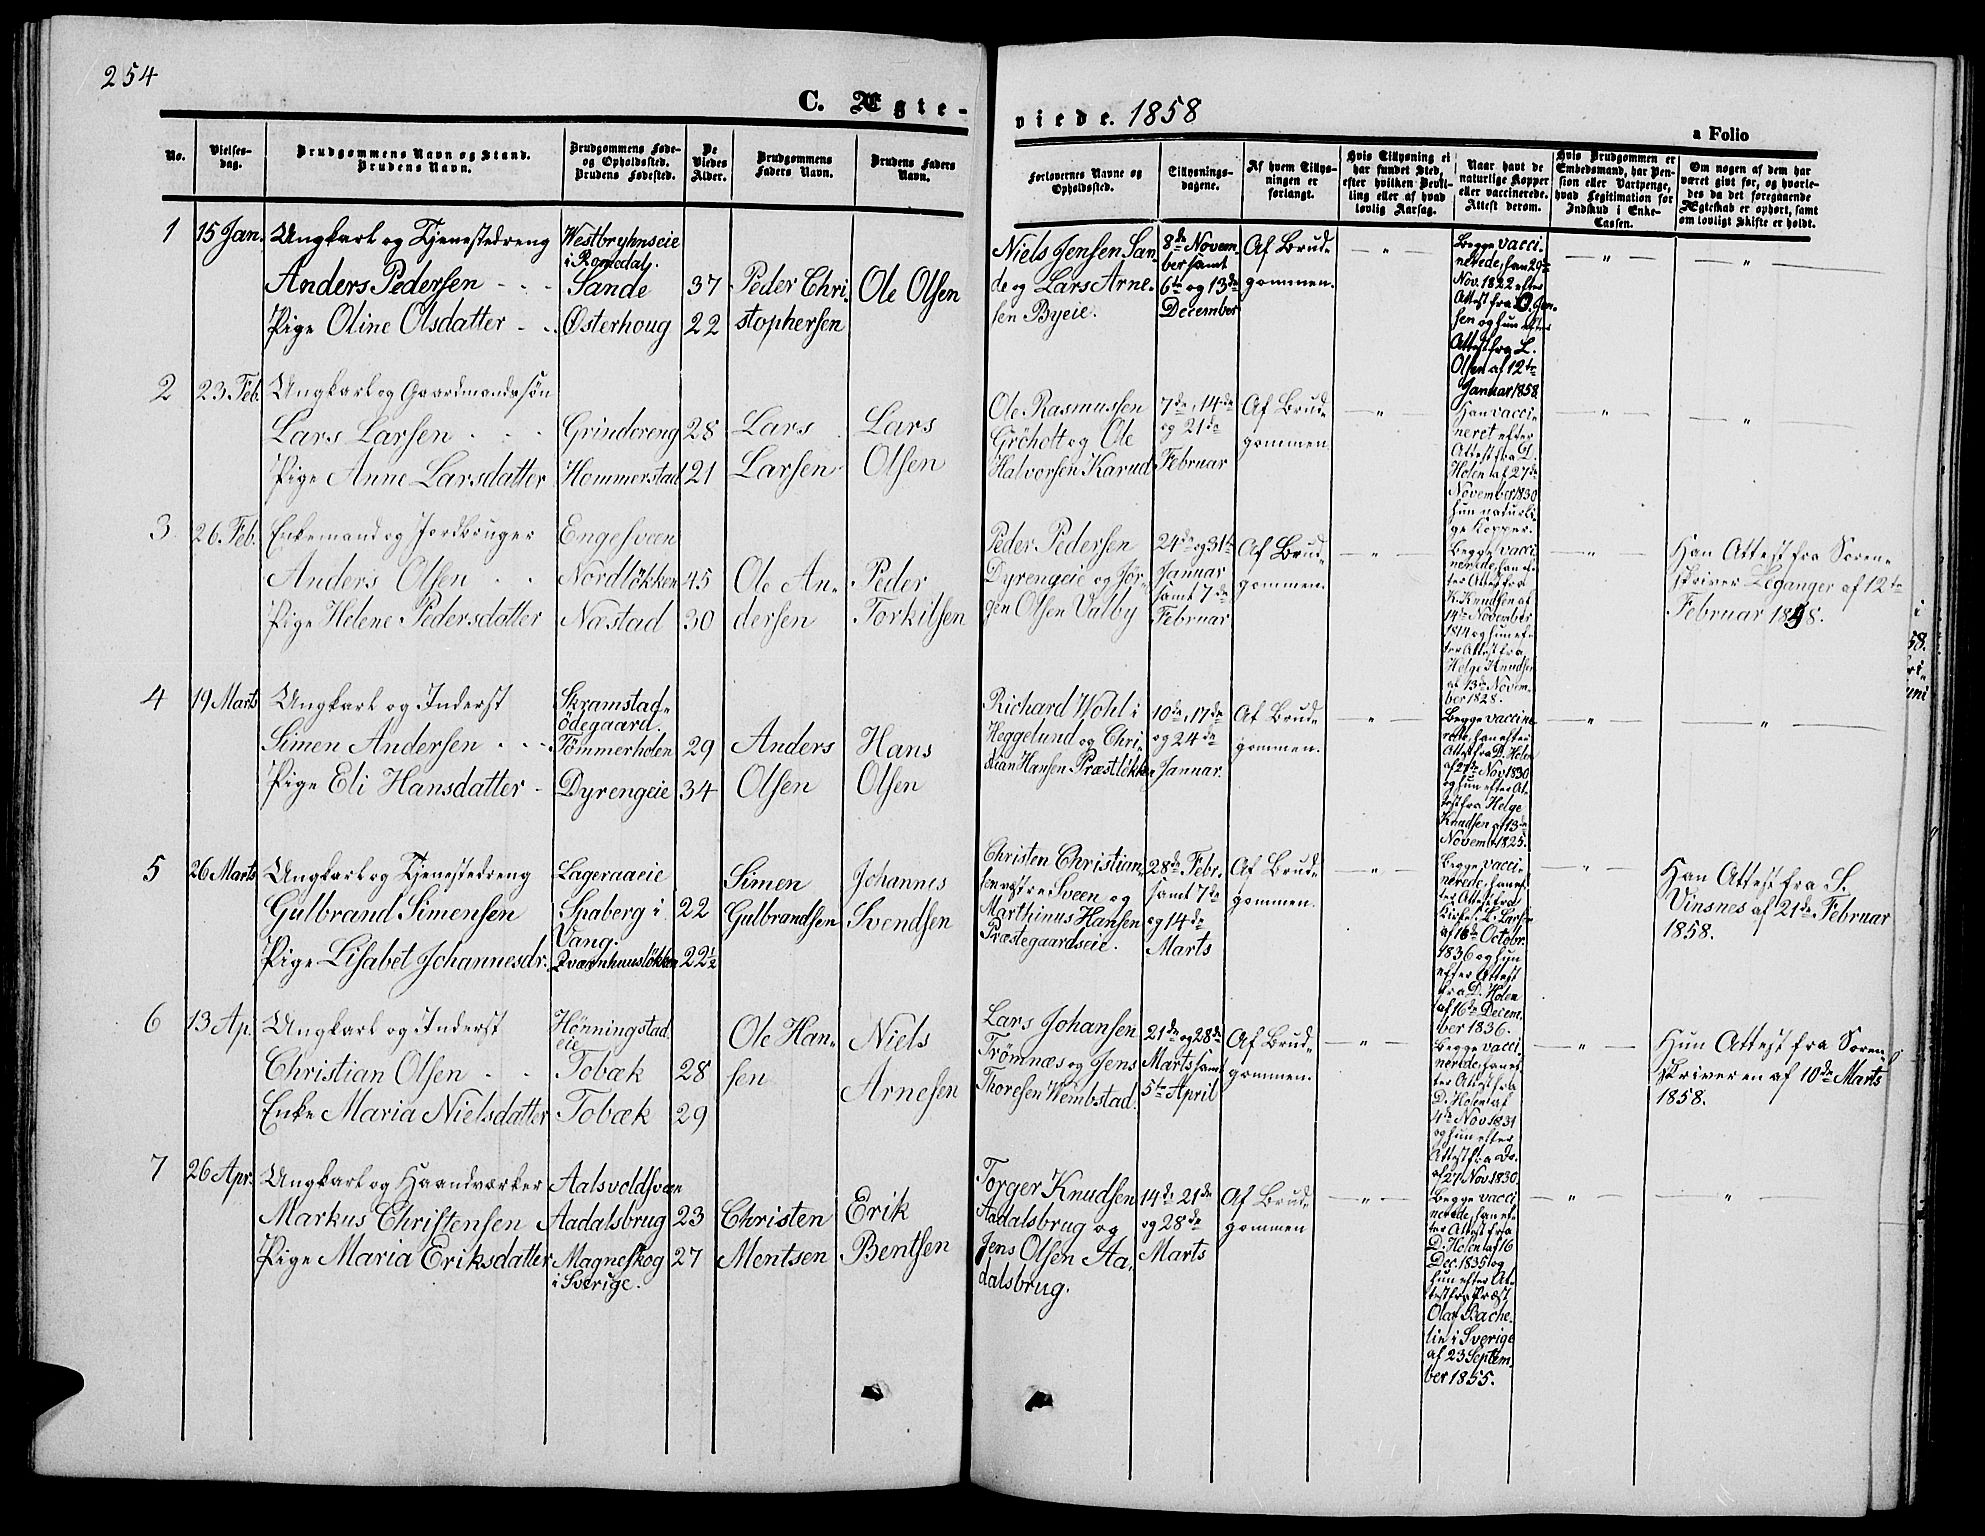 254
C. Ægte-
viede. 1858
a Folio
No.
Vielses-
dag.
Brudgommens Navn og Stand.
Brudens Navn.
Brudgommens Føde-
og Opholdssted.
Brudens Fødested.
De
Viedes
Alder.
Brudgommens
Faders Navn.
Brudens Faders
Navn.
Forlovernes Navne og
Opholdssted.
Tillysnings-
dagene.
Af hvem Tillys-
ningen er
forlangt.
Hvis Tillysning ei
har fundet Sted,
efter hvilken Bevil-
ling eller af hvad
lovlig Aarsag.
Naar havt de
naturlige Kopper
eller vaccinerede.
Attest derom.
Hvis Brudgommen er
Embedsmand, har Pen-
sion eller Vartpenge,
hvad Legitimation for
Indskud i Enke-
Cassen.
Om nogen af dem har
været givt før, og hvorle-
des da det foregaaende
Ægteskab er ophørt, samt
om lovligt Skifte er holdt.
1
15 Jan.
Ungkarl og Tjenestedreng
Anders Pedersen
Pige Oline Olsdatter
Westbryhnseie
i Romedal.
Sande
Østerhoug
37
22
Peder Chri-
stophersen
Ole Olsen
Niels Jensen San-
de og Lars Arne-
sen Byeie.
8de Novem-
ber samt
6te og 13de
December
Af Brud-
gommen.
Begge vacci-
nerede, han 29de
Nov. 1822 efter
Attest fra O. Jen-
sen og hun efter
Attest fra L.
Olsen af 12te
Januar 1858.
2
23 Feb.
Ungkarl og Gaardmandssøn
Lars Larsen
Pige Anne Larsdatter
Grindereng
Hommerstad
28
21
Lars
Larsen
Lars
Olsen
Ole Rasmussen
Gröholt og Ole
Halvorsen Karud
7de, 14de
og 21de
Februar
Af Brud-
gommen.
Han vacci-
neret efter
Attest fra D.
Holen af 27de
November 1830
hun naturli-
ge Kopper.
3
26 Feb.
Enkemand og Jordbruger
Anders Olsen
Pige Helene Pedersdatter
Engesveen
Nordløkken
Næstad
45
30
Ole An-
dersen
Peder
Torkilsen
Peder Pedersen
Dyrengeie og Jør-
gen Olsen Valby
24de og 31te
Januar
samt 7de
Februar
Af Brud-
gommen.
Begge vacci-
nerede, han ef-
ter Attest fra
K. Knudsen af
14de November
1814 og hun ef-
ter Attest fra
Helge Knudsen
af 13de Novem-
ber 1828.
Han Attest fra Soren-
skriver Leganger af 12te
Februar 1858.
4
19 Marts
Ungkarl og Inderst
Simen Andersen
Pige Eli Hansdatter
Skramstad-
ödegaard.
Tömmerholen
Dyrengeie
29
34
Anders
Olsen
Hans
Olsen
Richard Wohl i
Heggelund og Chri-
stian Hansen Præstløkken
10de, 17de
og 24de
Januar.
Af Brud-
gommen.
Begge vaccine-
rede, han efter
Attest fra D. Holen
af 27de Nov 1830
og hun efter At-
test fra Helge
Knudsen af 13de
Novembr 1825.
5
26 Marts
Ungkarl og Tjenestedreng
Gulbrand Simensen
Pige Lisabet Johannesdr.
Lageraaeie
Spaberg i
Vang.
Qværnhuusløkken
22
22½
Simen
Gulbrandsen
Johannes
Svendsen
Christen Christian-
sen østre Sveen og
Marthinus Hansen
Præstegaardseie.
28de Febr.
samt 7de
og 14de
Marts
Af Brud-
gommen.
Begge vacci-
nerede, han ef-
ter Attest fra
Kirkes. L. Larsen
af 16de Octobr.
1836 og hun
efter Attest
fra D. Holen
af 16de Decem-
ber 1836.
Han Attest fra S.
Vinsnes af 21de Februar
1858.
6
13 Ap.
Ungkarl og Inderst
Christian Olsen
Enke Maria Nielsdatter
Hönningstad
eie
Tobæk
Tobæk
28
29
Ole Han-
sen
Niels
Arnesen
Lars Johansen
Trömnæs og Jens
Thoresen Wembstad.
21de og 28de
Marts samt
5te April
Af Brud-
gommen.
Begge vacci-
nerede, han ef-
ter Attest fra
D. Holen af
4de Nov 1831
og hun efter
Attest fra Do.
af 27 Nov. 1830.
Hun Attest fra Soren-
skriveren af 10de Marts
1858.
7
26 Apr.
Ungkarl og Haandværker
Markus Christensen
Pige Maria Eriksdatter
Aalsvoldsveen
Aadalsbrug
Magneskog
i Sverige.
23
27
Christen
Mentsen
Erik
Bentsen
Torger Knudsen
Aadalsbrug og
Jens Olsen Aa-
dalsbrug.
14de 21de
og 28de
Marts
Af Brud-
gommen
Begge vacci-
nerede, han ef-
ter Attest fra
D. Holen af 16
Dec. 1835 og
hun efter At-
test fra Præst
Olaf Bache-
lin i Sverige
af 23 Septem-
ber 1855.